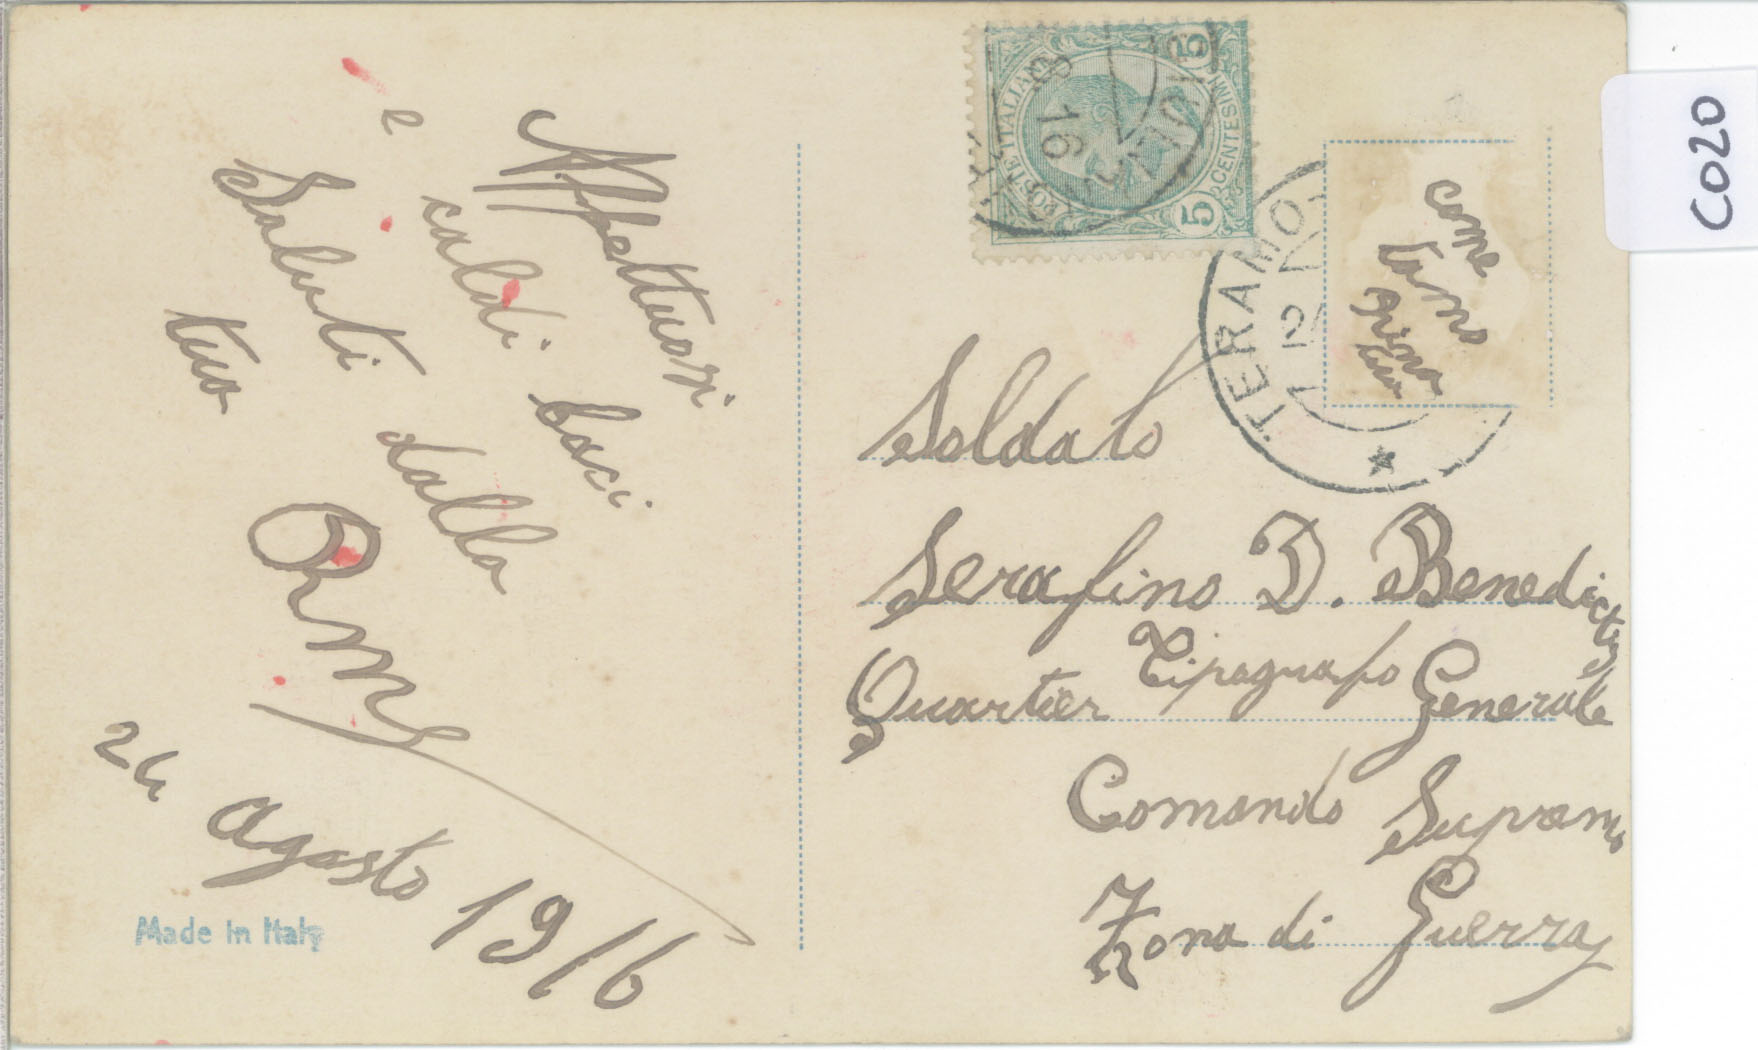 Affettuosi
e caldi baci
Saluti dalla
tua
24 agosto 1916
Made in Italy
POSTE ITALIANE
CENTESIMI
5
5
16
TERAMO
come
prima
Soldato
Serafino D. Benedictis
Tipografo
Quartier Generale
Comando Supremo
Zona di Guerra
C020